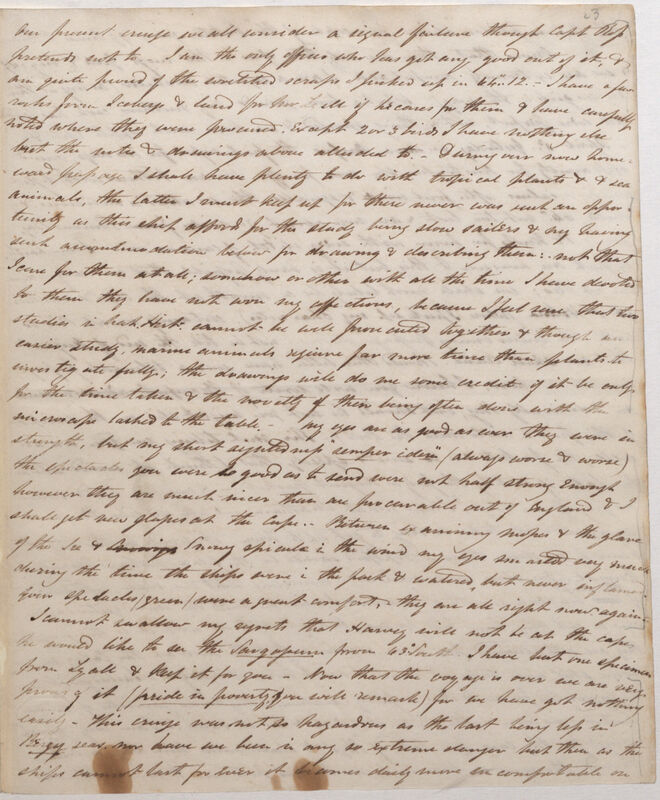 63
Our present cruise we all consider a signal failure though Capt Ross
pretends not to. I am the only officer who has got any good out of it, &
am quite proud of the wretched scraps I picked up in 61"12. – I have a few
rocks from Icebergs & land for if he cares for them & have carefully
noted where they were procured. Except 2 or 3 birds I have nothing else
but the notes & drawings above alluded to – During our now home-
ward passage I shall have plenty to do with tropical plants & sea
animals, the latter I must keep up for there never was such an oppor-
tunity as this ship affords for the study being slow sailers & my having
such accommodation below for drawing & describing them: not that
I care for them at all; somehow or other with all the time I have devoted
to them they have not won my affections, because I feel sure that two
studies in Nat. Hist. cannot be well prosecuted together & though an
easier study, marine animals require far more time than plants to
investigate fully; the drawings will do me some credit if it be only
for the time taken & the novelty of their being often done with the
microscope lashed to the table. – my eyes are as good as ever they were in
strength, but my short sightedness "semper idem" (always worse & worse)
the spectacles you were so good as to send were not half strong enough
however they are much nicer than are procurable out of England & I
shall get new glasses at the Cape. – Between examining mosses & the glare
of the Ice & Snowy spiculæ i the wind my eyes smarted very much
during the time the ships were i the pack & watered, but never inflamed
Even spectacles (green) were a great comfort, – they are all right now again –
I cannot swallow my regrets that Harvey will not be at the Cape
he would like to see the Sargassum from 63 South. I have but one specimen
from Lyall & keep it for you – Now that the voyage is over we are very
proud of it (pride in poverty you will remark) for we have got nothing
easily – This cruise was not so hazardous as the last being less in
Heavy seas, nor have we been in any so extreme danger but then as the
ships cannot last for ever it becomes daily more uncomfortable on